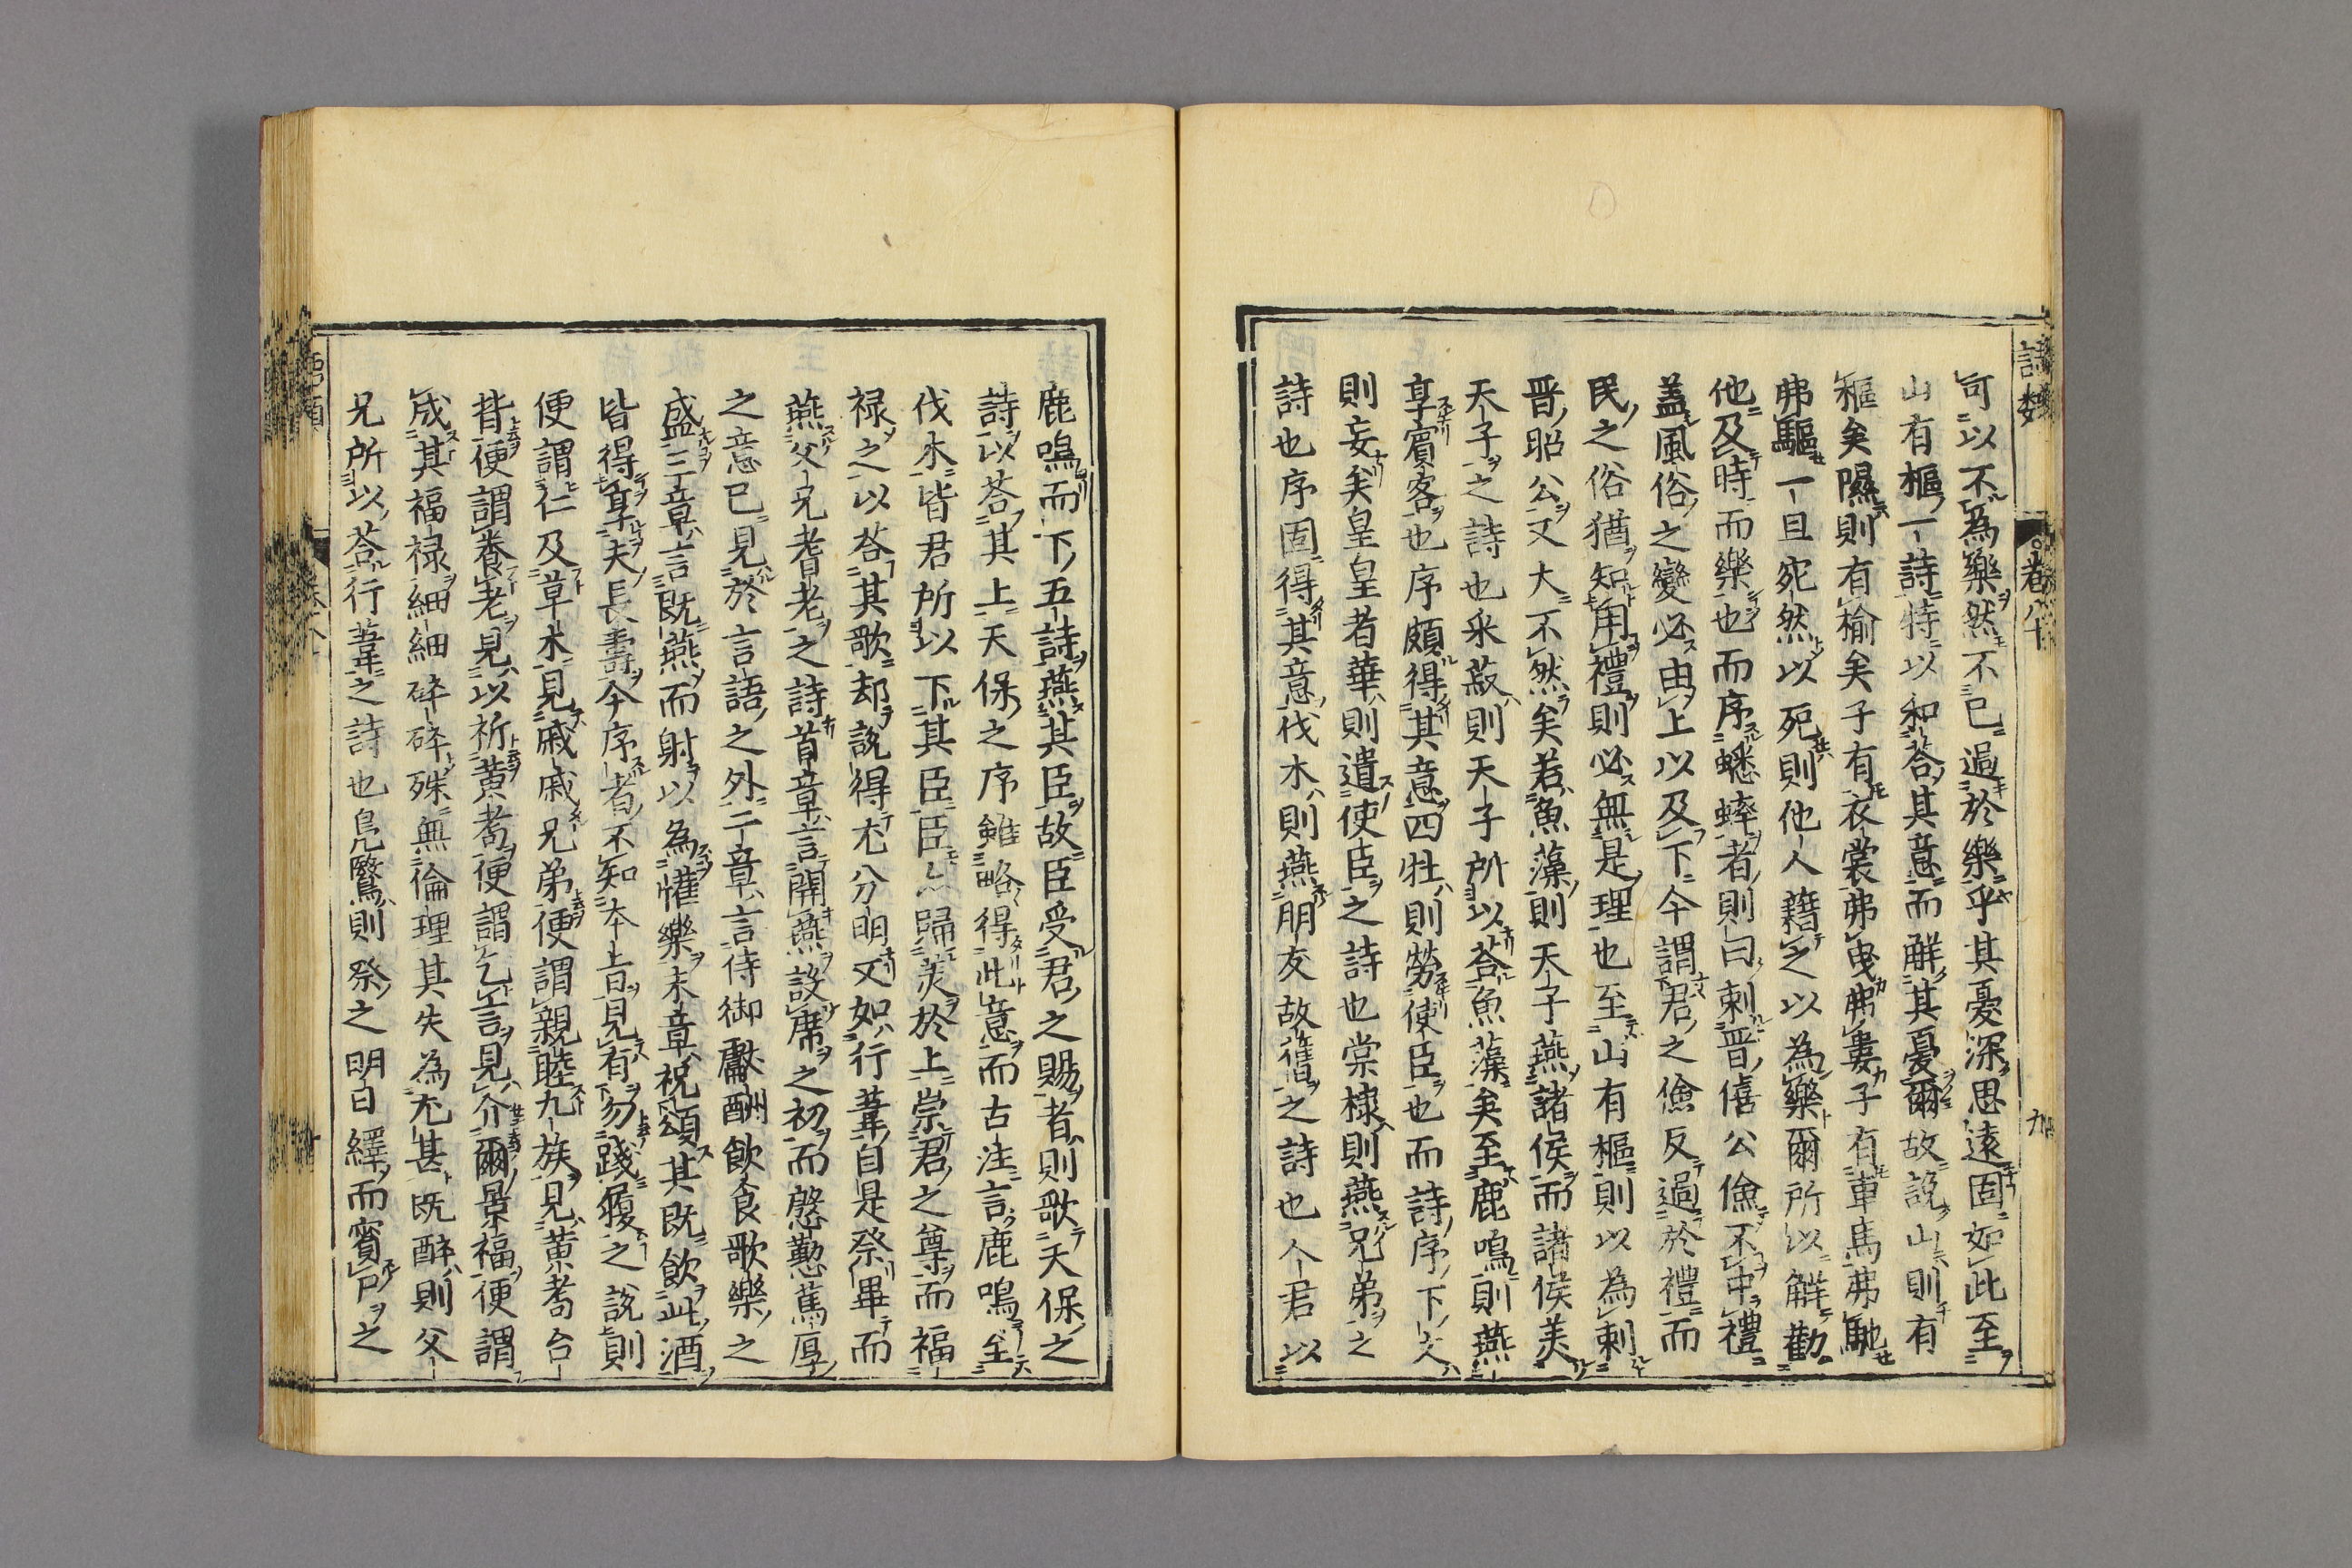 可以不為樂然不已過於樂乎其憂深思遠固如此至
山有樞一詩特以和荅其意而解其憂爾故說山則有
樞矣隰則有榆矣子有衣裳弗曳弗婁子有車馬弗馳
弗驅一旦宛然以死則他人藉之以為樂爾所以解勸
他及時而樂也而序蟋蟀者則曰刺晋僖公儉不中禮
盖風俗之變必由上以及下今謂君之儉反過於禮而
民之俗猶知用禮則必無是理也至山有樞則以為刺
晋昭公又大不然矣若魚藻則天子燕諸侯而諸侯美
天子之詩也采菽則天子所以荅魚藻矣至鹿鳴則燕
享賓客也序頗得其意四牡則勞使臣也而詩序下文
則妄矣皇皇者華則遣使臣之詩也棠棣則燕兄弟之
詩也序固得其意伐木則燕朋友故舊之詩也人君以
詩類
卷八十
九
鹿鳴而下五詩燕其臣故臣受君之賜者則歌天保之
詩以荅其上天保之序雖略得此意而古注言鹿鳴至
伐木皆君所以下其臣臣亦歸美於上崇君之尊而福
禄之以荅其歌却說得尤分明又如行葦自是祭畢而
燕父兄耆老之詩首章言開燕設席之初而慇懃篤厚
之意已見於言語之外二章言侍御獻酬飲食歌樂之
盛三章言既燕而射以為懽樂末章祝頌其既飲此酒
皆得享夫長壽今序者不知本旨見有勿踐履之說則
便謂仁及草木見戚戚兄弟便謂親睦九族見黄耉台
背便謂養老見以祈黄耉便謂乞言見介爾景福便謂
成其福禄細細碎碎殊無倫理其失為尤甚既醉則父
兄所以荅行葦之詩也鳧鷖則祭之明日繹而賓尸之